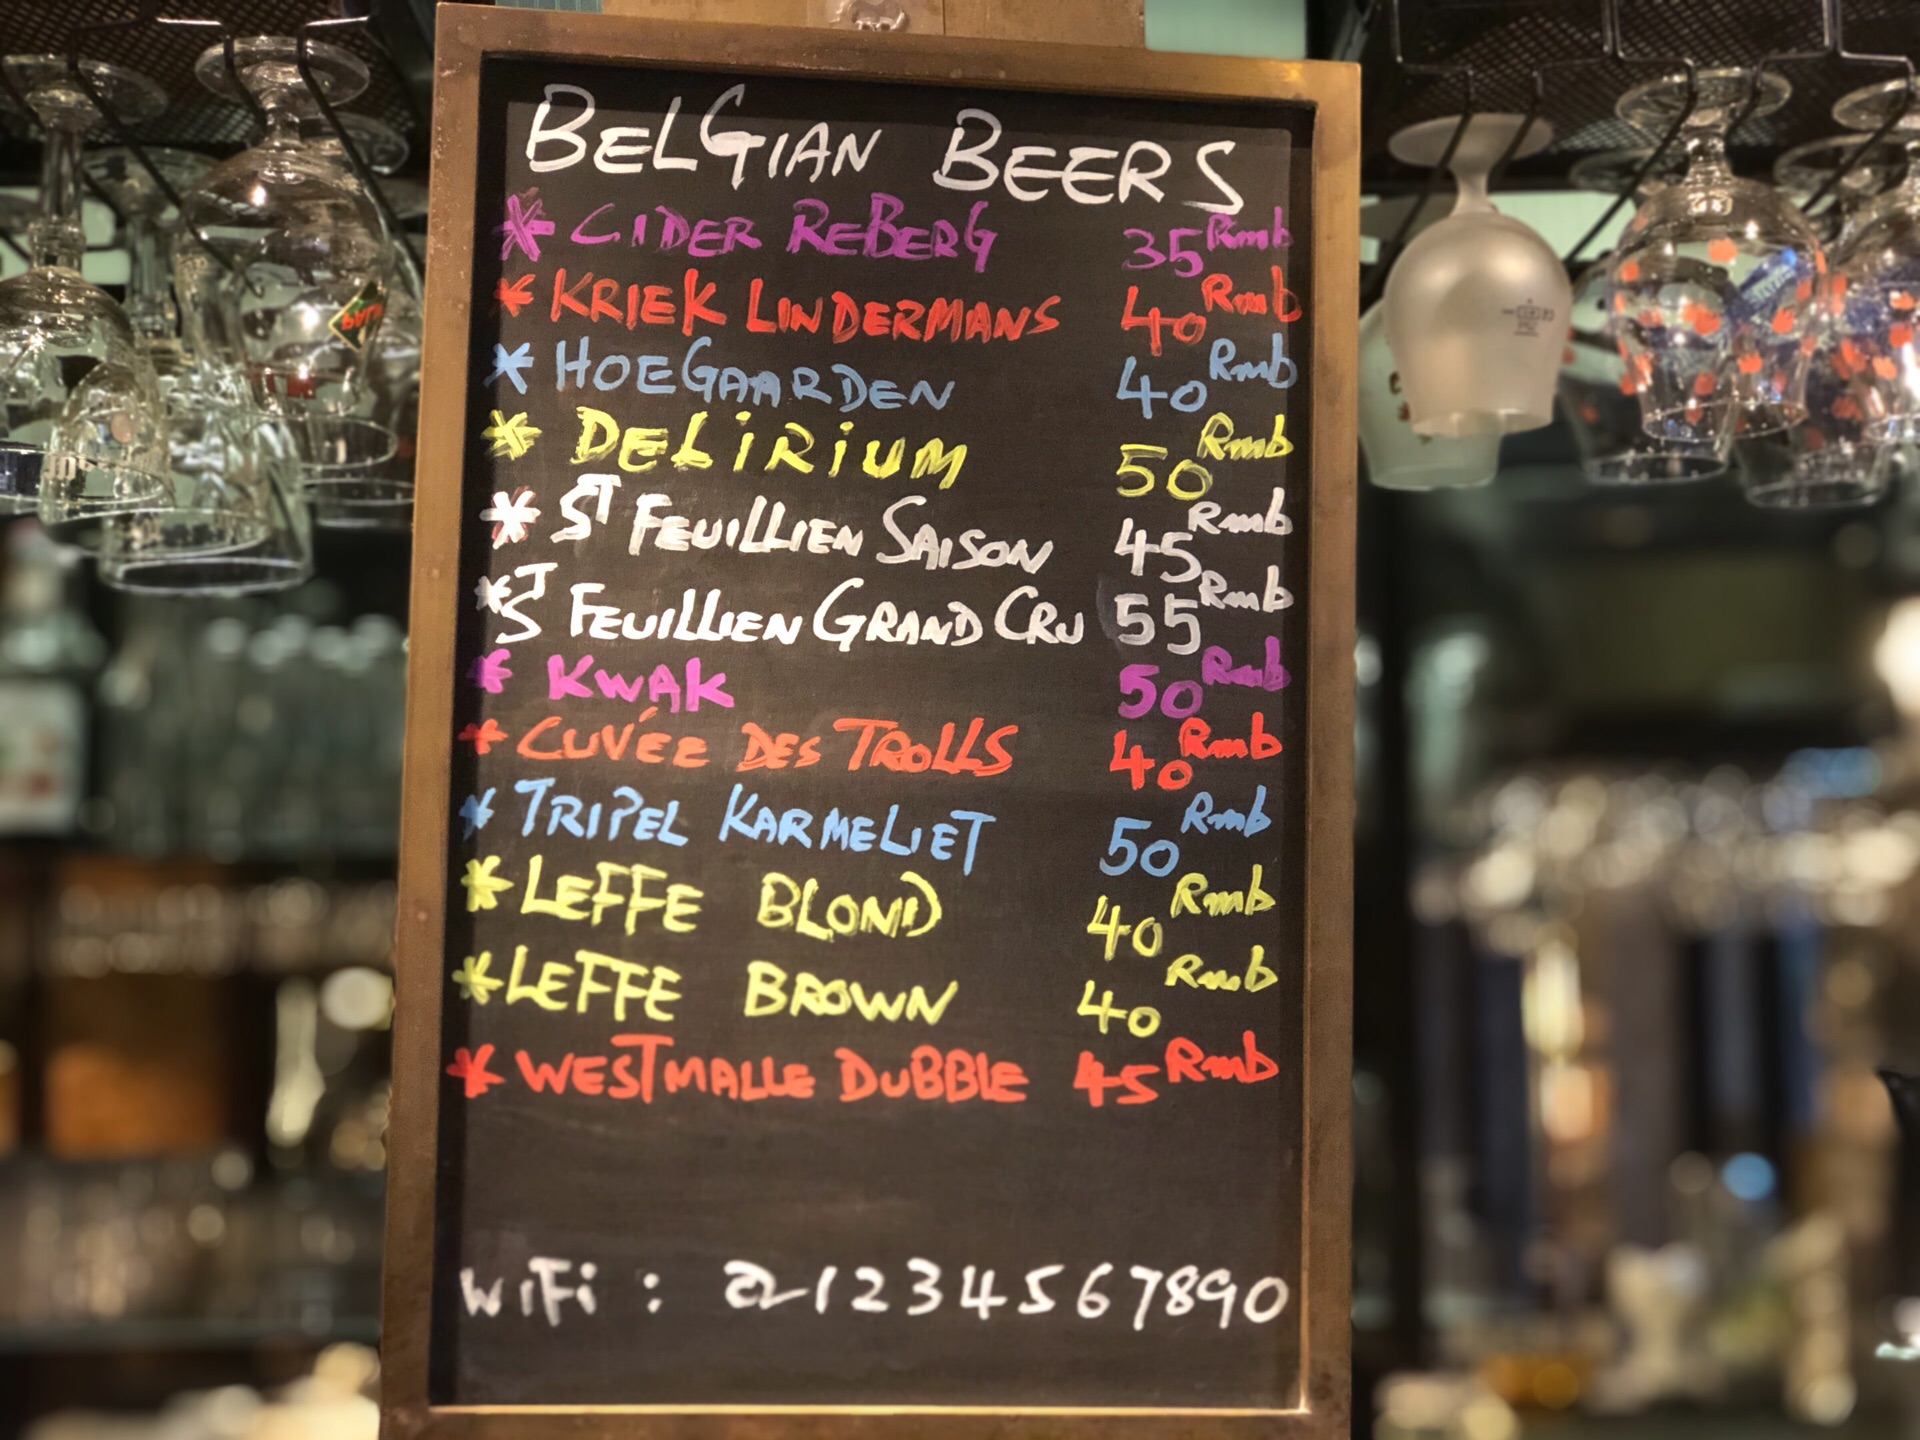 BELGIAN BEERS
* CIDER REBERG 35 Rmb
* KRIEK LINDERMANS 40 Rmb
* HOEGAARDEN 40 Rmb
* DELiRiUM 50 Rmb
* ST FEUILLIEN SAISON 45 Rmb
* ST FEUILLIEN GRAND CRU 55 Rmb
* KWAK 50 Rmb
* CUVÉE DES TROLLS 40 Rmb
* TRIPEL KARMELIET 50 Rmb
* LEFFE BLOND 40 Rmb
* LEFFE BROWN 40 Rmb
* WESTMALLE DUBBLE 45 Rmb
WiFi : a1234567890